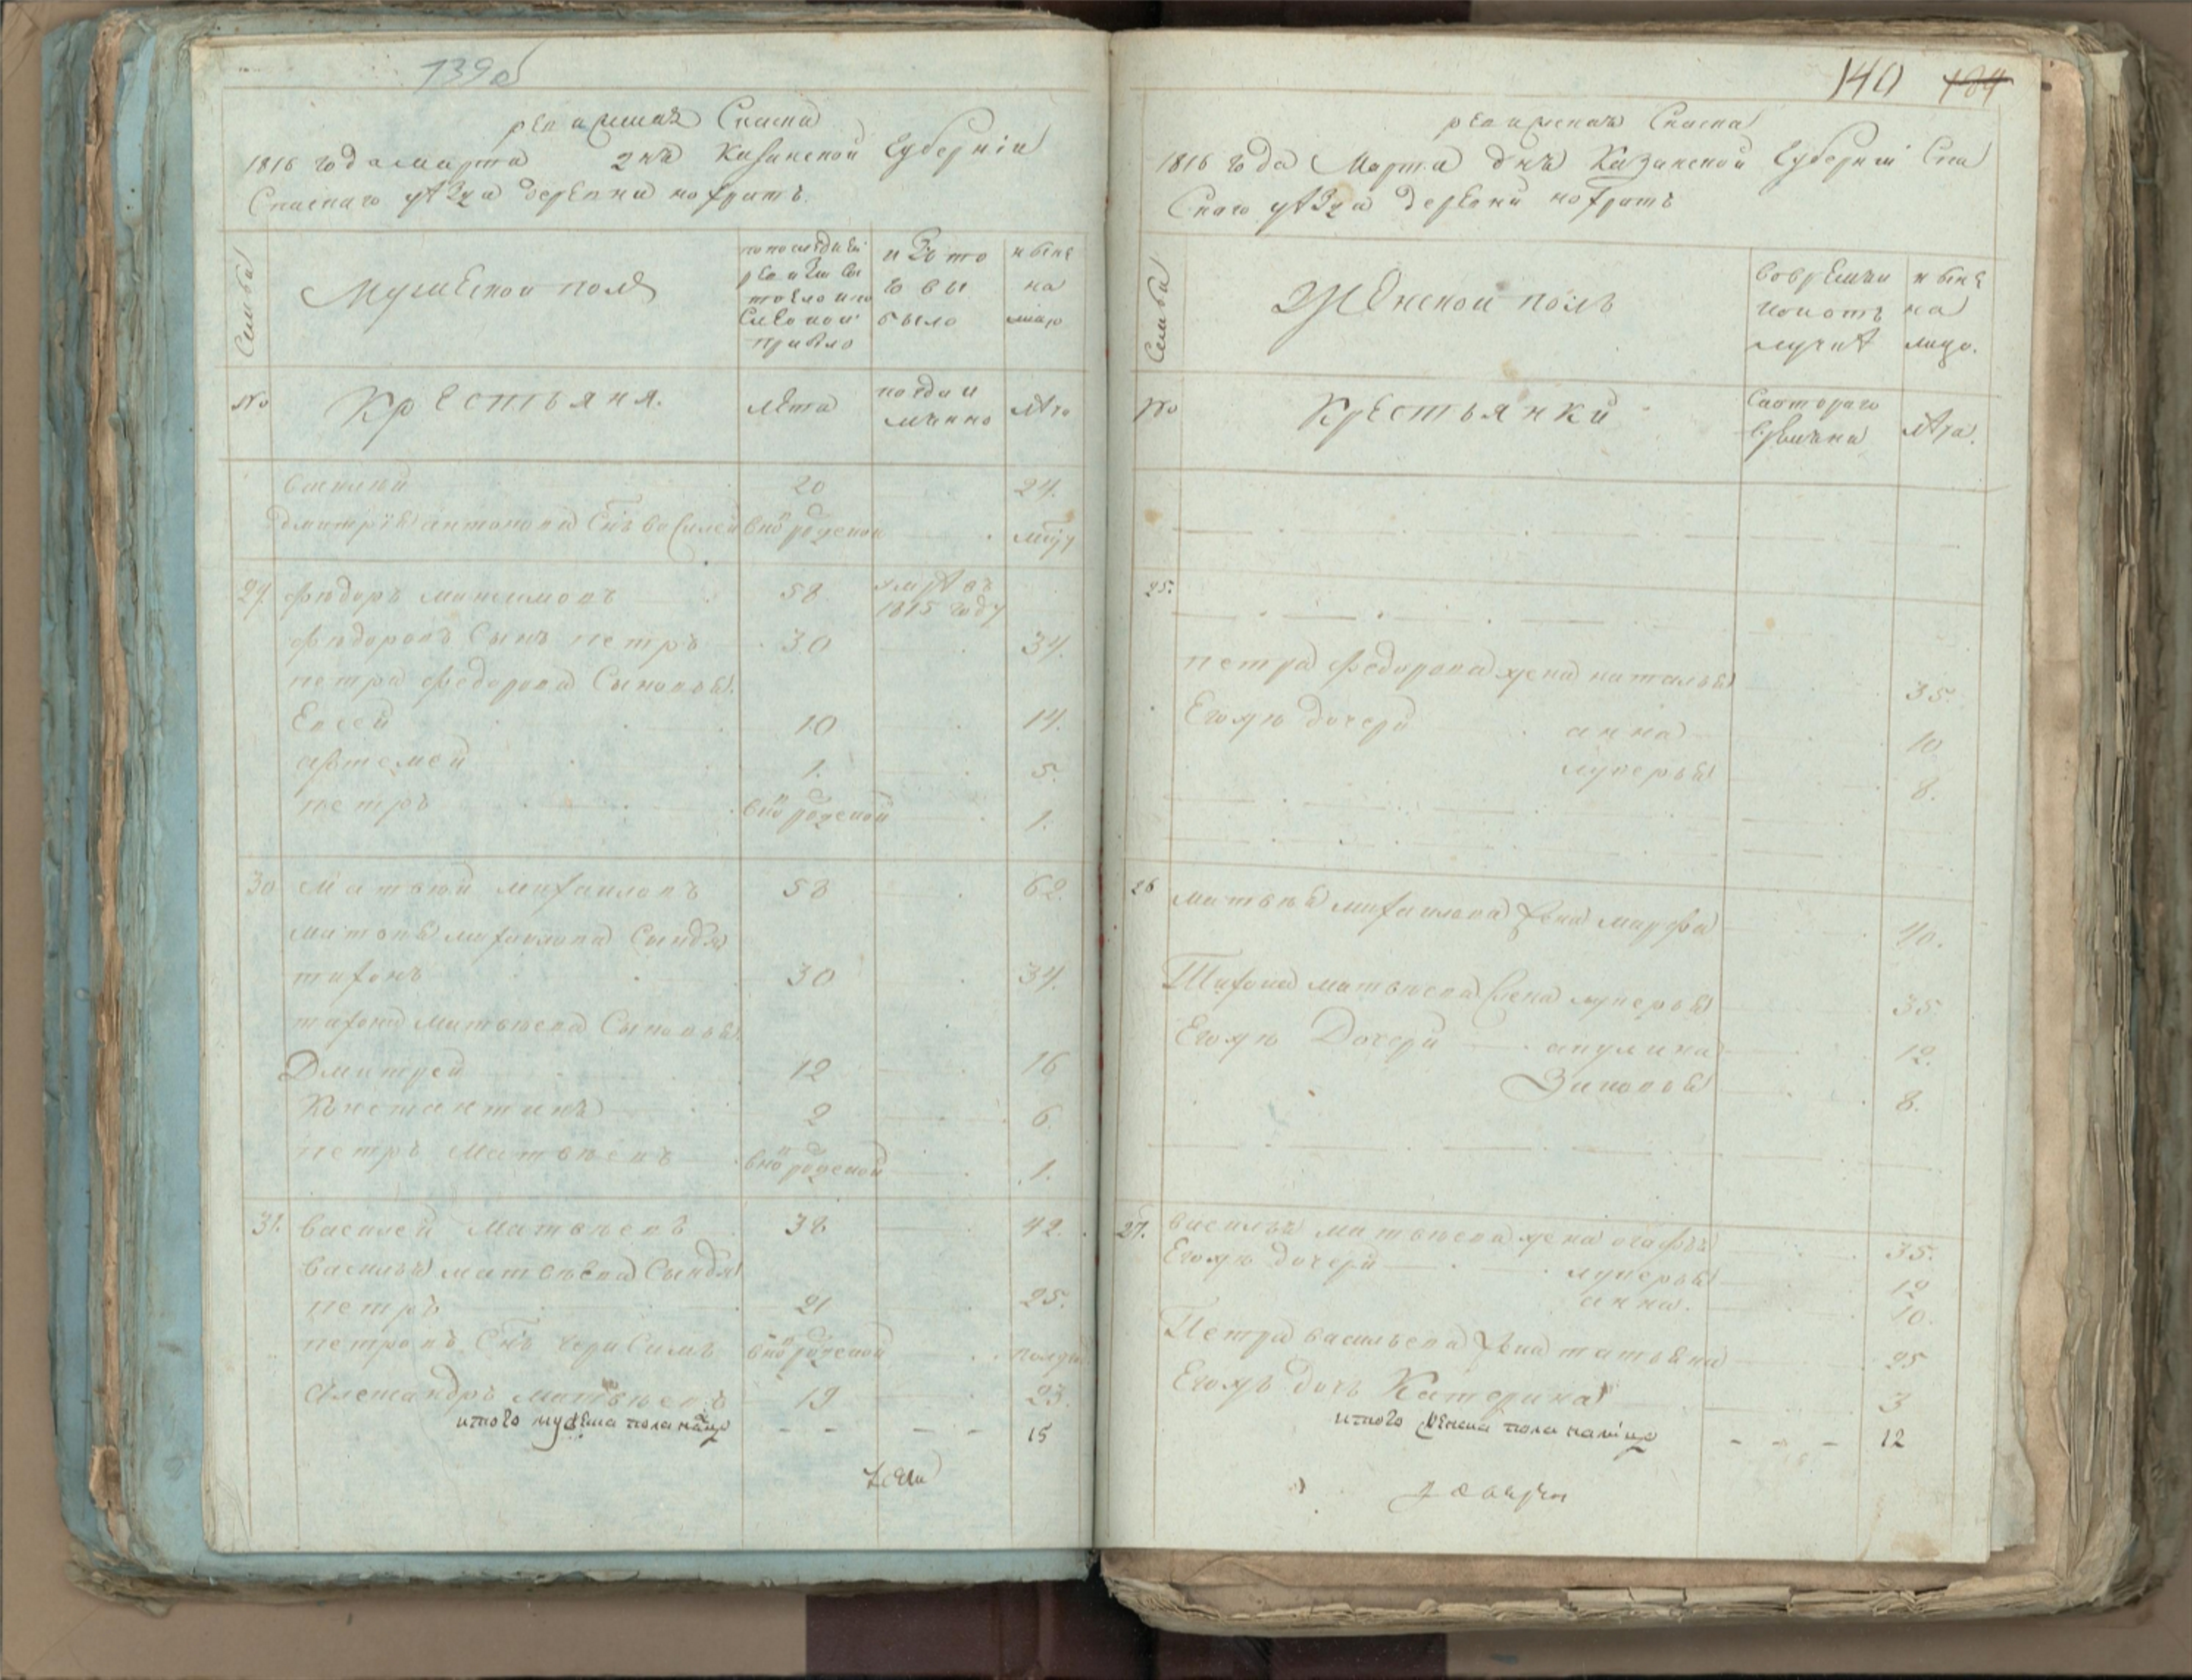 139об
ревижская Скаска
1816 года марта 2 нъ Казанской Губерніи
Спаскаго уѣзда деревни нохратъ.
Семьи
Мужеской полъ
по последней ревизии состояло и после оной прибыло
изъ того выбыло
ныне на лицо
№
Крестьяня.
лѣта
когда и
лѣта
василей 20 24.
дмитрія антонова Снъ василей внов рожденой
29. федоръ максимовъ 58 умре въ 1815 году
федоровъ Сынъ петръ 30 34.
петра федорова Сыновья.
Евсей 10 14.
артемей 1. 5.
петръ внов рожденой 1.
30 Матвей михаиловъ 58 62.
матвея михаилова Сындя
тихонъ 30 34.
тихона матвеева Сыновья
Дмитрей 12 16
Константинъ 2 6.
петръ Матвеевъ внов рожденой 1.
31. василей Матвеевъ 38 42.
василья матвеева Сындя
петръ 21 25.
петровъ Снъ герасимъ внов рожденой полгода
Александръ матвеевъ 19 23.
итого мужеска пола налицо - - - - 15
140 184
ревижская Скаска
1816 года Марта днъ Казанской Губерніи Спа
Скаго уѣзда деревни нохратъ
Семьи
Женской полъ
во временной отлучкѣ
ныне на лицо.
№
Крестьянки
Скотораго времени
лѣта.
25.
петра федорова жена наталья 35.
Егожъ дочери анна 10
лукерья 8.
26 матвея михаилова жена марфа 40.
Тихона матвеева жена лукерья 35
Егожъ Дочери акулина 12.
Зиновья 8.
27. василья матвеева жена агафья 35.
Егожъ дочери лукерья 12
анна. 10.
Петра васильева жена татьяна 25
Егожъ дочь Катерина 3
итого женска пола налицо - - - 12